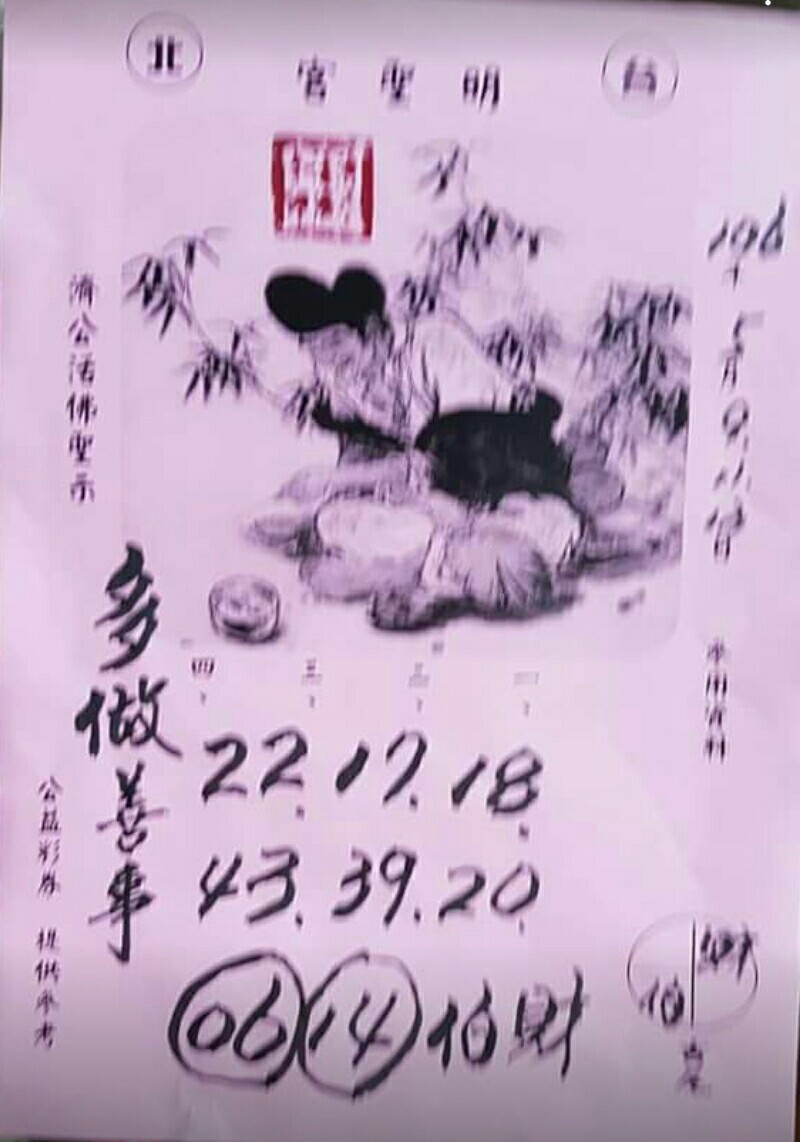 台 北
明聖宮
106年5月
參考資料
一、 二、 三、 四、
濟公活佛聖示
多做善事
22. 17. 18.
43. 39. 20.
06 14 伯財
公益彩券 提供參考
財
伯